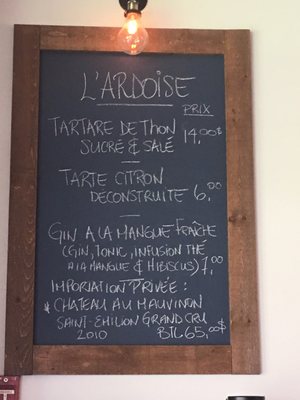 L'ARDOISE
PRIX
TARTARE DE THON 14,00$
SUCRÉ & SALÉ
TARTE CITRON
DECONSTRUITE 6,00
GIN A LA MANGUE FRAÎCHE
(GIN, TONIC, INFUSION THÉ
A LA MANGUE & HIBISCUS) 7,00
IMPORTATION PRIVÉE :
* CHATEAU AU MAUVINON
SAINT-EMILION GRAND CRU
2010 BTL 65,00$